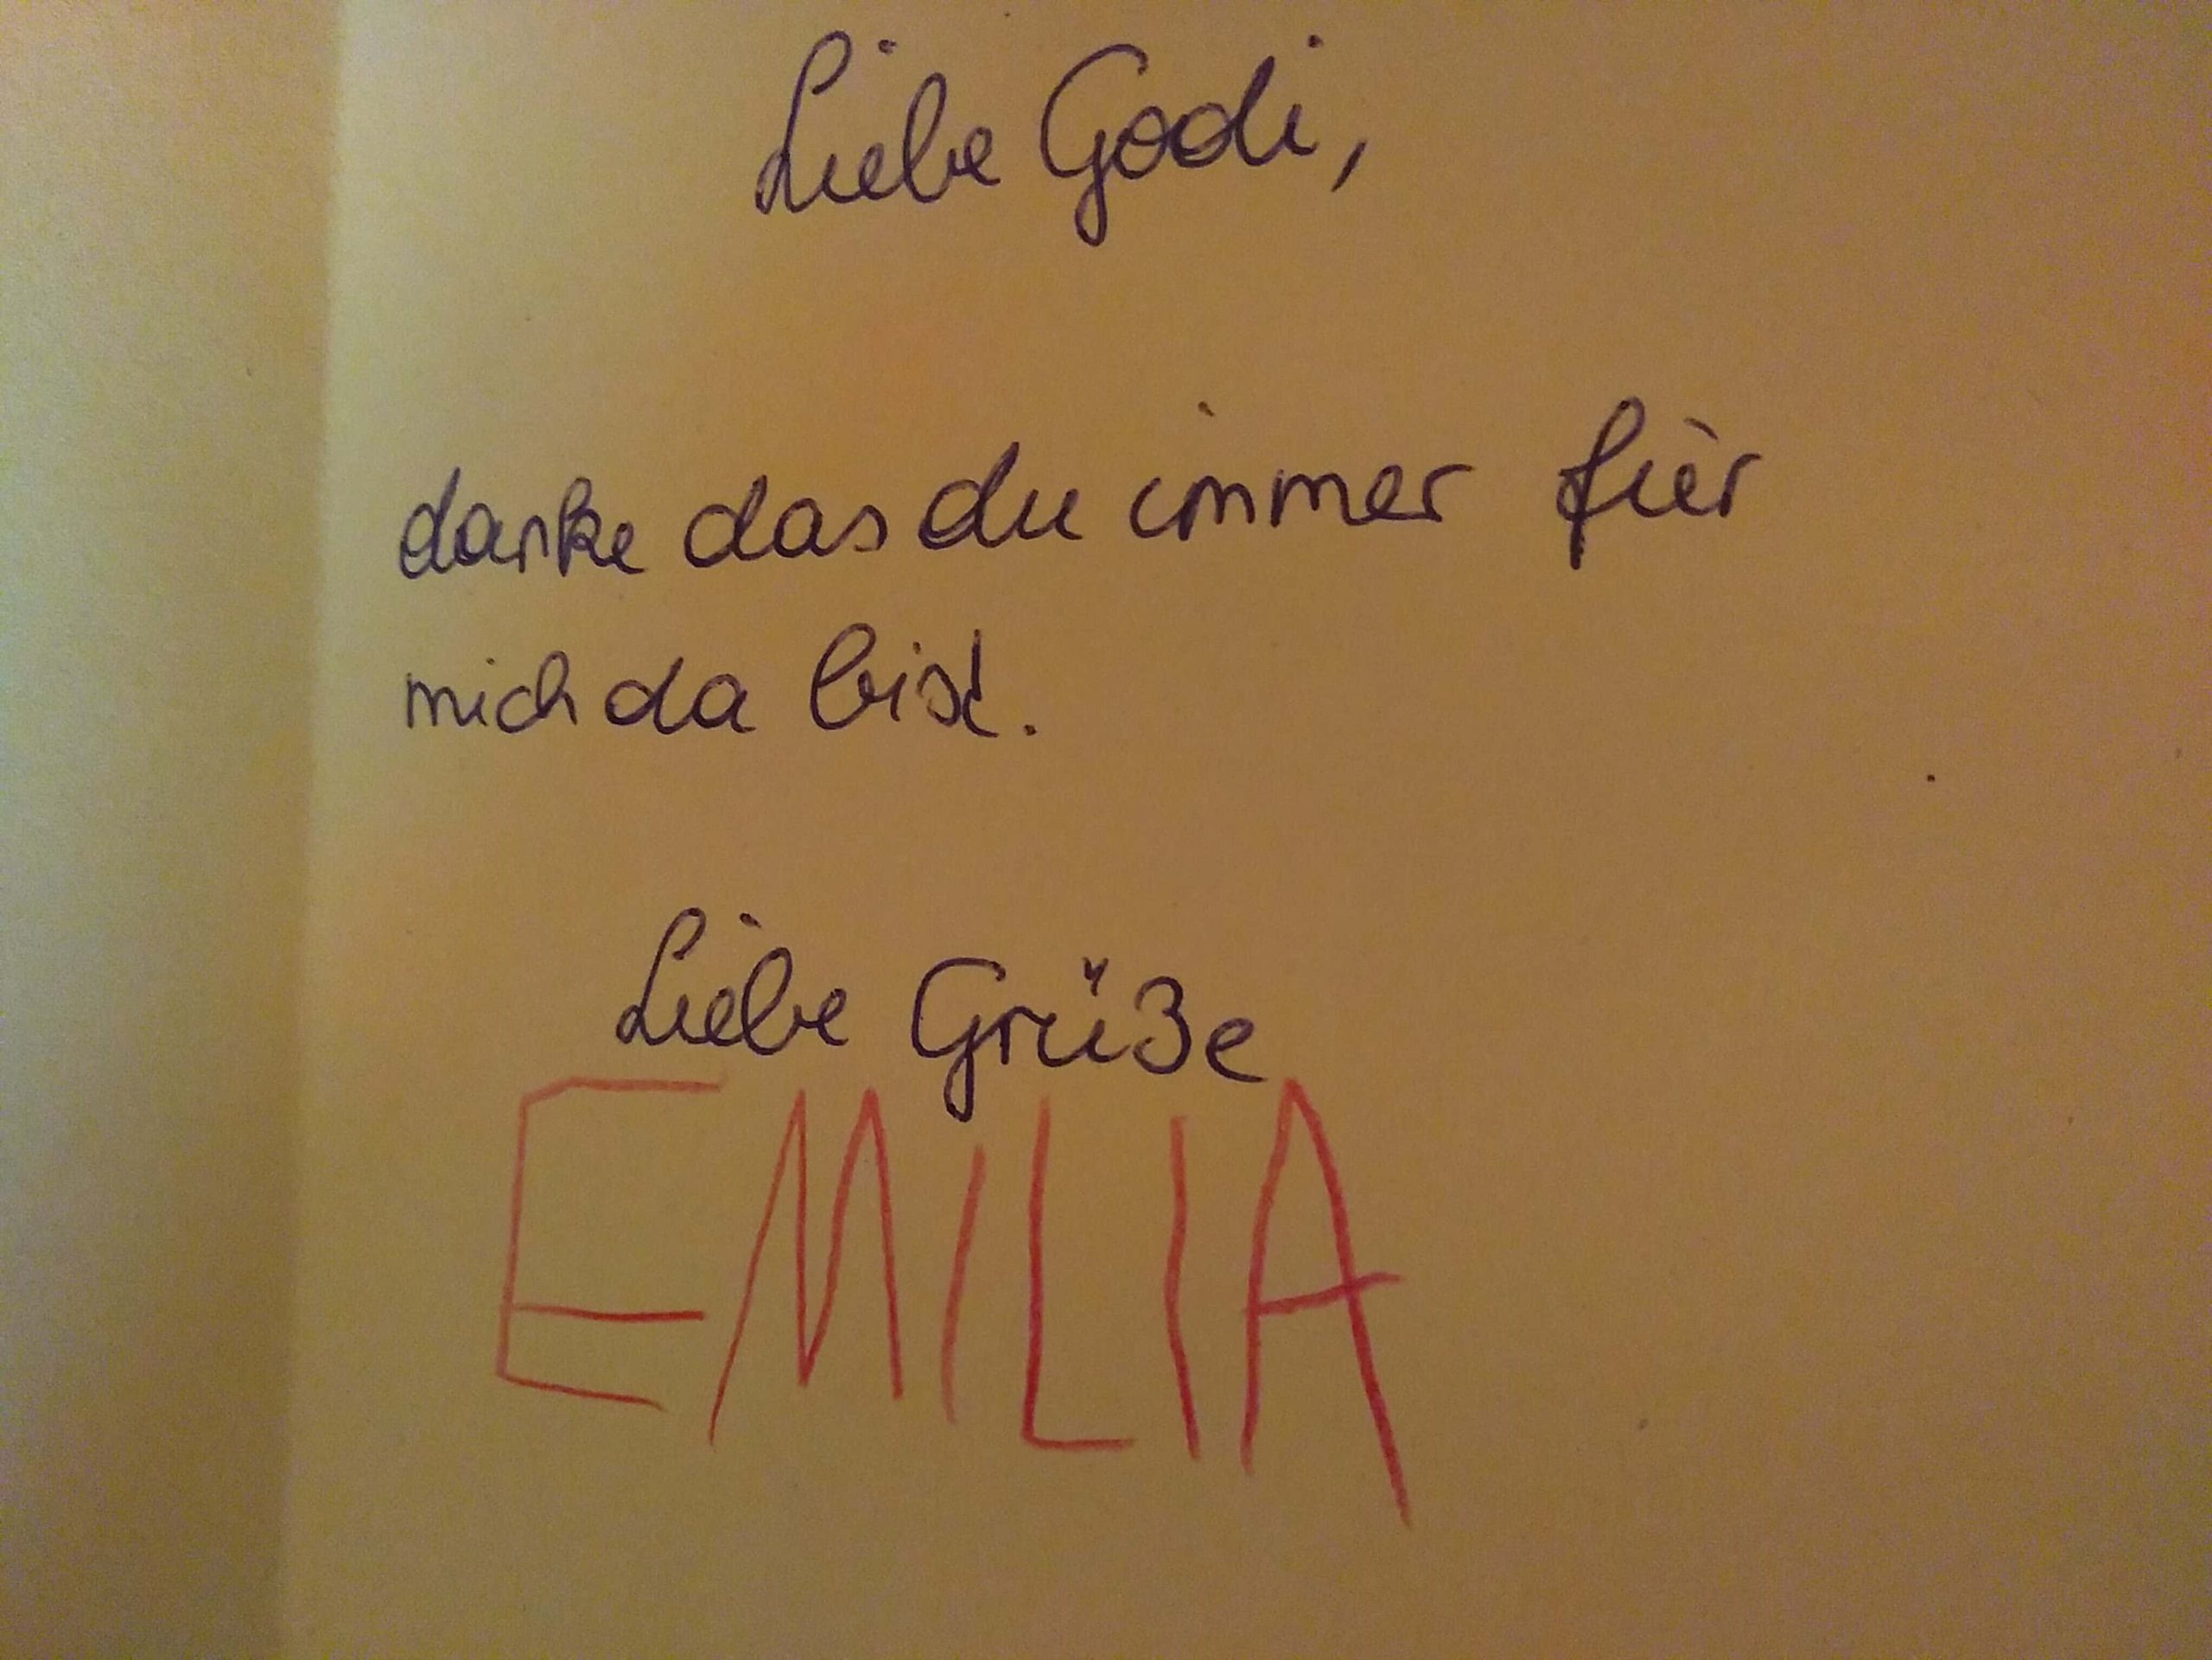 Liebe Godi,
danke das du immer für
mich da bist.
Liebe Grüße
EMILIA